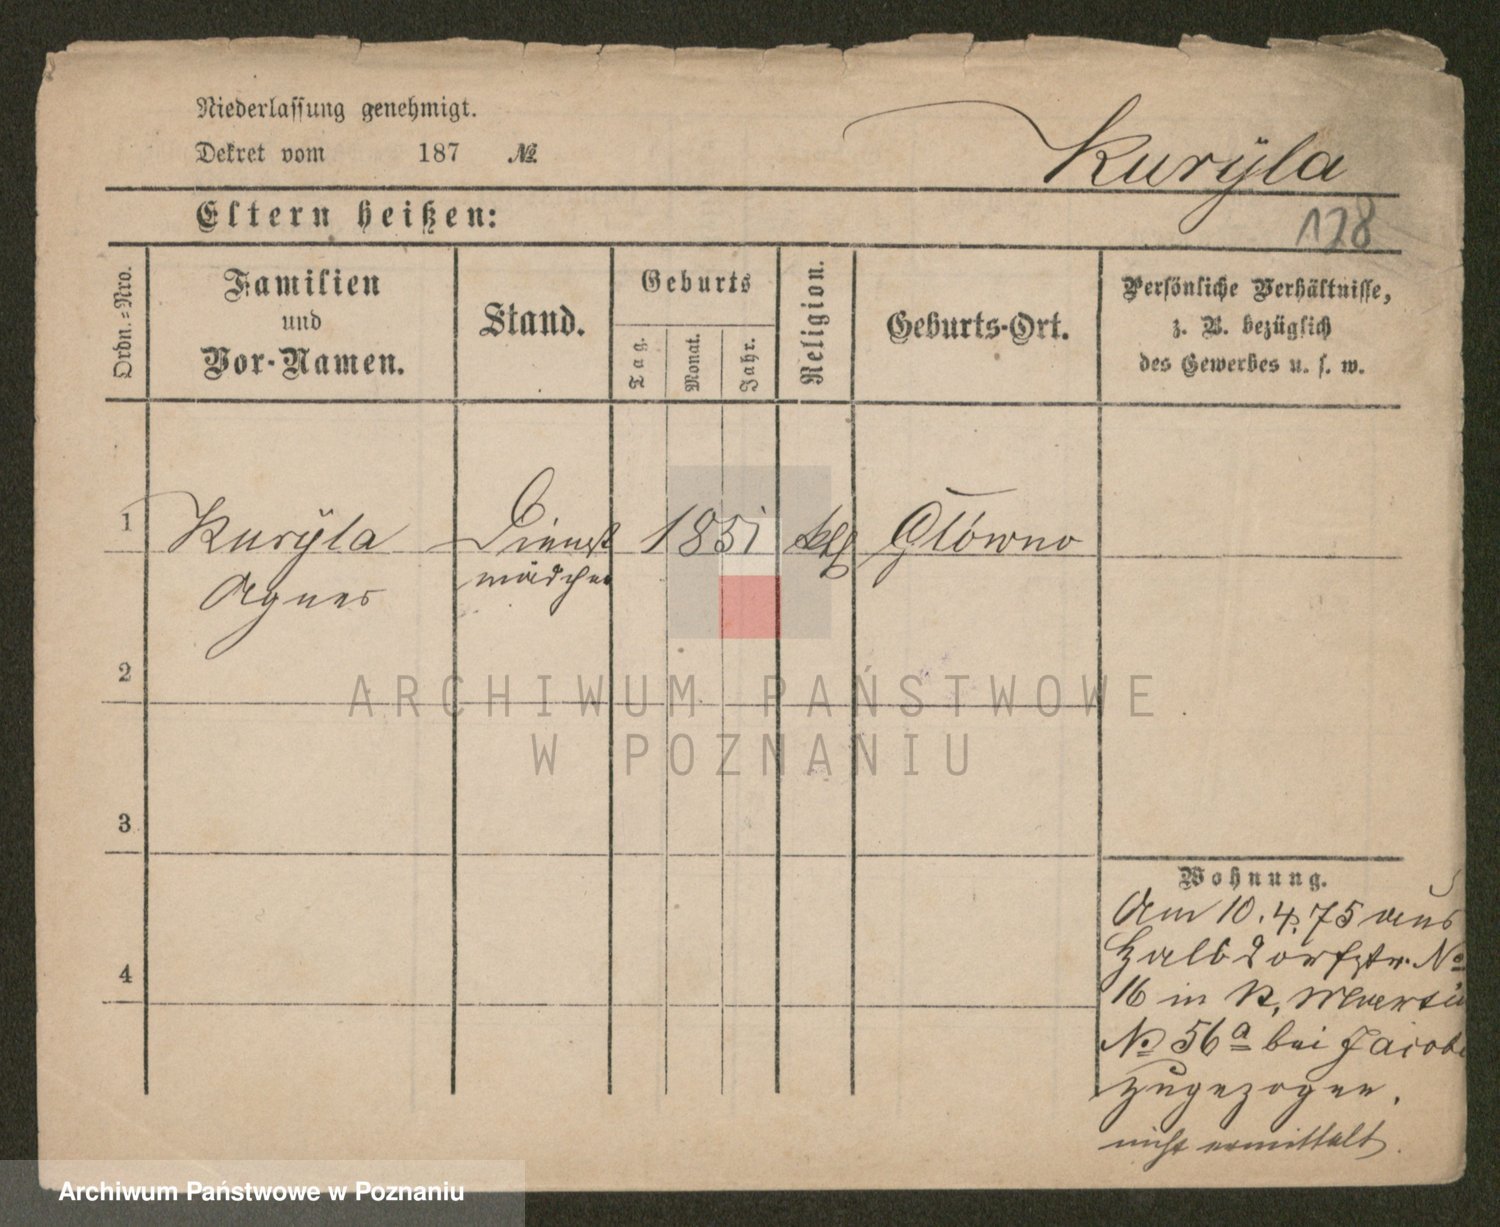 Niederlassung genehmigt.
Dekret vom 187 №
Kurÿla
Eltern heißen:
178
Ordn.-Nro.
Familien
und
Vor-Namen.
Stand.
Geburts
Tag.
Monat.
Jahr.
Religion.
Geburts-Ort.
Persönliche Verhältnisse,
z. B. bezüglich
des Gewerbes u. s. w.
1 Kurÿla Dienst 1851 kth Główno
Agnes mädchen
2
3
4
Wohnung.
Am 10.4.75 aus
Halbdorfstr. №
16 in St. Martin
№ 56a bei Jacobi
zugezogen.
nicht ermittelt.
ARCHIWUM PAŃSTWOWE
W POZNANIU
Archiwum Państwowe w Poznaniu